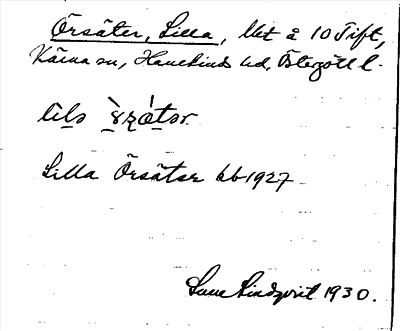 Örsäter, Lilla, Ut å 10 Tift,
Kärna sn, Hanekinds hd, Östergötl l.
lils
Lilla Örsäter kb 1927
Sune Lindqvist 1930.